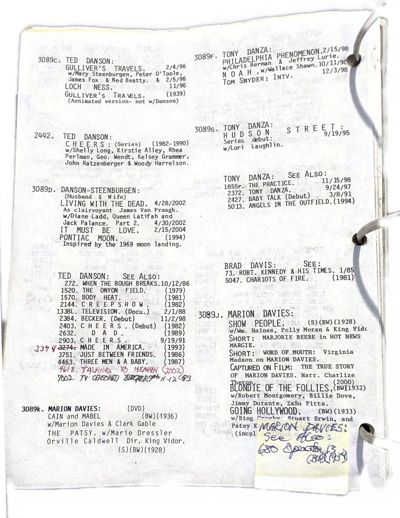 3089c. TED DANSON:
GULLIVER'S TRAVELS. 2/4/96
w/Mary Steenburgen, Peter O'Toole,
James Fox & Ned Beatty. & 2/5/96
LOCH NESS. 11/96
GULLIVER'S TRAVELS. (1939)
(Annimated version- not w/Danson)
2442. TED DANSON:
CHEERS: (Series) (1982-1990)
w/Shelly Long, Kirstie Alley, Rhea
Perlman, Geo. Wendt, Kelsey Grammer,
John Ratzenberger & Woody Harrelson.
3089D. DANSON-STEENBURGEN:
(Husband & Wife)
LIVING WITH THE DEAD. 4/28/2002
As clairvoyant James Van Praagh.
w/Diane Ladd, Queen Latifah and
Jack Palance. Part 2. 4/30/2002
IT MUST BE LOVE. 2/15/2004
PONTIAC MOON. (1994)
Inspired by the 1969 moon landing.
TED DANSON: SEE ALSO:
272. WHEN THE BOUGH BREAKS. 10/12/86
1520. THE ONYON FIELD. (1979)
1570. BODY HEAT. (1981)
2144. CREEPSHOW. (1982)
1338L. TELEVISION. (Docu.) 2/1/88
2384. BECKER. (Debut) 11/2/98
2403. CHEERS. (Debut) (1982)
2632. DAD. (1989)
2903. CHEERS. 9/19/91
3374 MADE IN AMERICA. (1993)
3751. JUST BETWEEN FRIENDS. (1986)
4463. THREE MEN & A BABY. (1987)
4618. TALKING TO HEAVEN (2002)
7002. TV 11-12-93
3089K. MARION DAVIES: (DVD)
CAIN and MABEL (BW)(1936)
w/Marion Davies & Clark Gable
THE PATSY. w/Marie Dressler
Orville Caldwell Dir. King Vidor.
(S)(BW)(1928)
3089F. TONY DANZA:
PHILADELPHIA PHENOMENON. 2/15/98
w/Chris Berman & Jeffrey Lurie.
NOAH. w/Wallace Shawn. 10/11/98
TOM SNYDER: INTV. 12/3/98
3089G. TONY DANZA:
HUDSON STREET:
Series debut: 9/19/95
w/Lori Laughlin.
TONY DANZA: SEE ALSO:
1855F. THE PRACTICE. 11/15/98
2372. TONY DANZA. 9/24/97
2427. BABY TALK (Debut) 3/8/91
5013. ANGELS IN THE OUTFIELD. (1994)
BRAD DAVIS: SEE:
73. ROBT. KENNEDY & HIS TIMES. 1/85
5047. CHARIOTS OF FIRE. (1981)
3089J. MARION DAVIES:
SHOW PEOPLE. (S)(BW)(1928)
w/Wm. Haines, Polly Moran & King Vidor
SHORT: MARJORIE BEEBE in HOT NEWS
MARGIE.
SHORT: WORD OF MOUTH: Virginia
Madson on MARION DAVIES.
CAPTURED ON FILM: THE TRUE STORY
OF MARION DAVIES. Narr. Charlize
Theron. (2000)
BLONDIE OF THE FOLLIES. (BW)(1932)
w/Robert Montgomery, Billie Dove,
Jimmy Durante, ZaSu Pitts.
GOING HOLLYWOOD. (BW)(1933)
w/Bing Crosby, Stuart Erwin, and
Patsy K
(incpl
MARION DAVIES:
See Also:
680